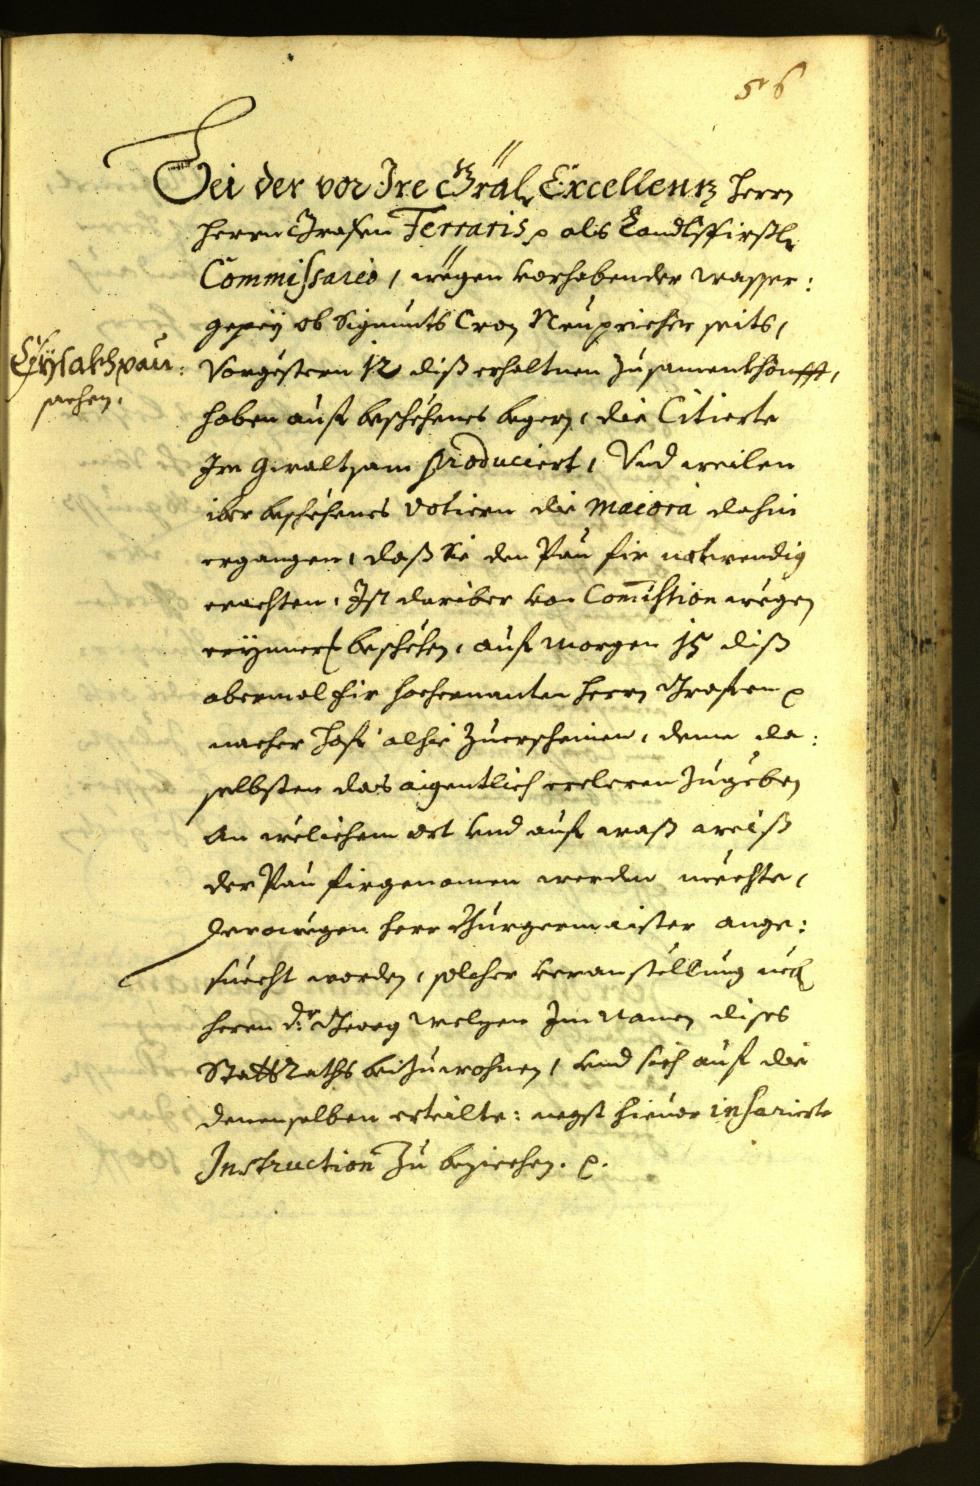 56
Bei der vor Ire Gräfl. Excellentz Herrn
Herrn Grafen Ferraris p als Landtsfirstl.
Commissario, wegen vorhabender Wasser:
gepey ob Sigmundts Cron Neupricher seits,
Eysakhpau:
sachen.
Vorgestern 12 diß erhaltnen Zusamenkhonfft,
haben auf beschehenes begern, die Citierte
Irn Gwaltsam produciert, Und weilen
iber beschehenes Votiern die maiora dahin
ergangen, daß Sie den Pau fir notwendig
erachten. Ist dariber von Commission wegen
erynnert beschehen, auf Morgen 15 diß
abermal fir hochernanten Herrn Grafen p
nacher Hof alhie Zuerscheinen, denn da:
selbsten das aigentlich erclern Zugeben
An welichem ort und auf waß weiß
der Pau firgenomen werden mechte,
Derowegen Herr Burgermaister ange:
suecht worden, solcher veranstellung neb.
Herrn Dr. Georg Welzen Im Namen dises
StattRaths beizuwohnen, und sich auf die
denenselben erteilte: negst hievor inserierte
Instruction Zu beziechen. p.